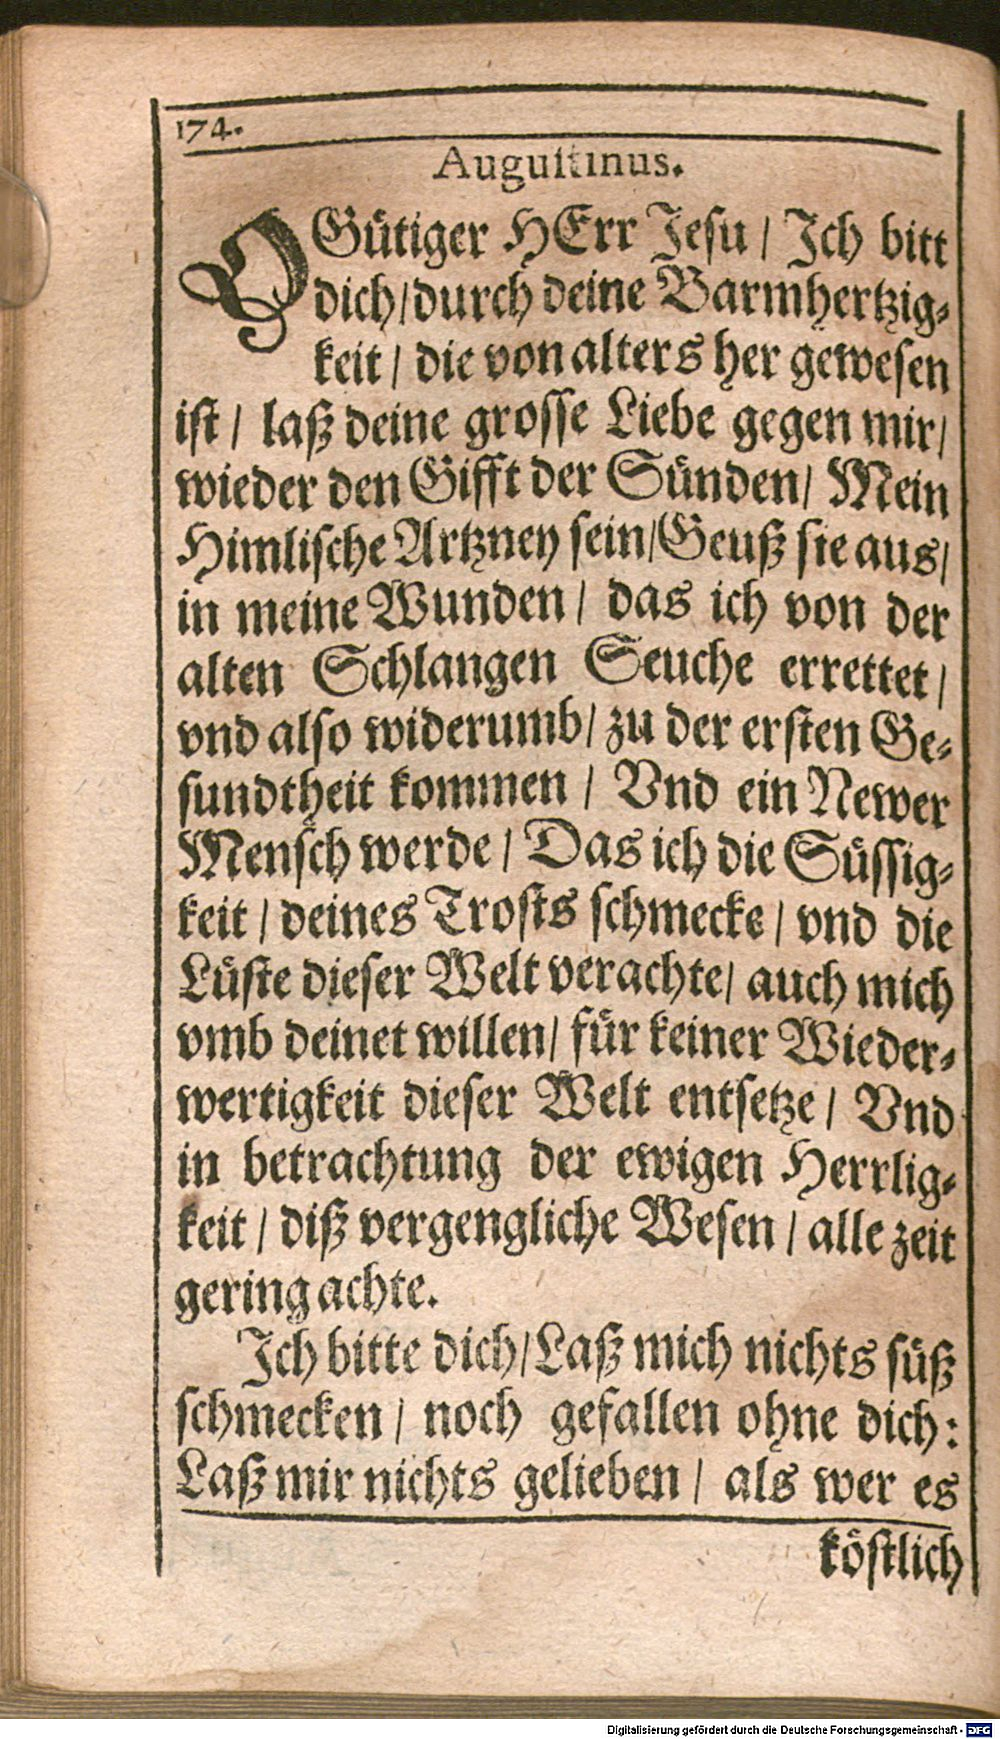 174.
Augustinus.
O Gütiger HErr Jesu / Ich bitt
dich / durch deine Barmhertzig-
keit / die von alters her gewesen
ist / laß deine grosse Liebe gegen mir /
wieder den Gifft der Sünden / Mein
Himlische Artzney sein / Geuß sie aus /
in meine Wunden / das ich von der
alten Schlangen Seuche errettet /
vnd also widerumb / zu der ersten Ge-
sundtheit kommen / Vnd ein Newer
Mensch werde / Das ich die Süssig-
keit / deines Trosts schmecke / vnd die
Lüste dieser Welt verachte / auch mich
vmb deinet willen / für keiner Wieder-
wertigkeit dieser Welt entsetze / Vnd
in betrachtung der ewigen Herrlig-
keit / diß vergengliche Wesen / alle zeit
gering achte.
Ich bitte dich / Laß mich nichts süß
schmecken / noch gefallen ohne dich:
Laß mir nichts gelieben / als wer es
köstlich
Digitalisierung gefördert durch die Deutsche Forschungsgemeinschaft - DFG